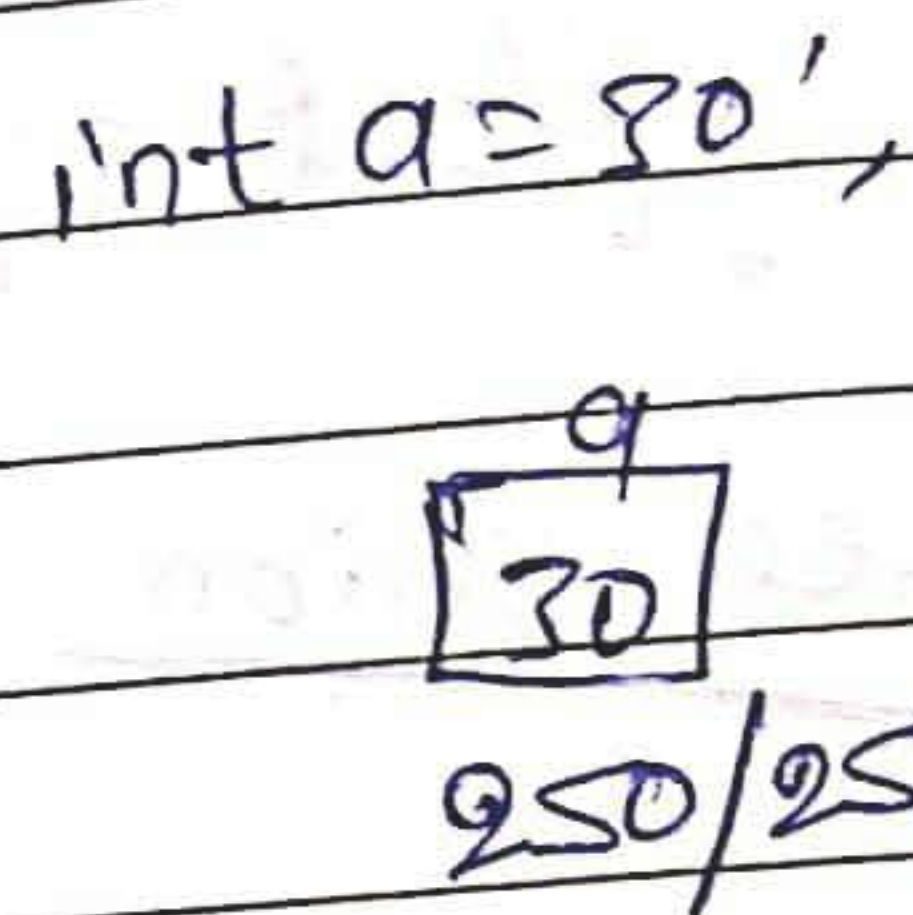 int a = 30;
a
30
250/25